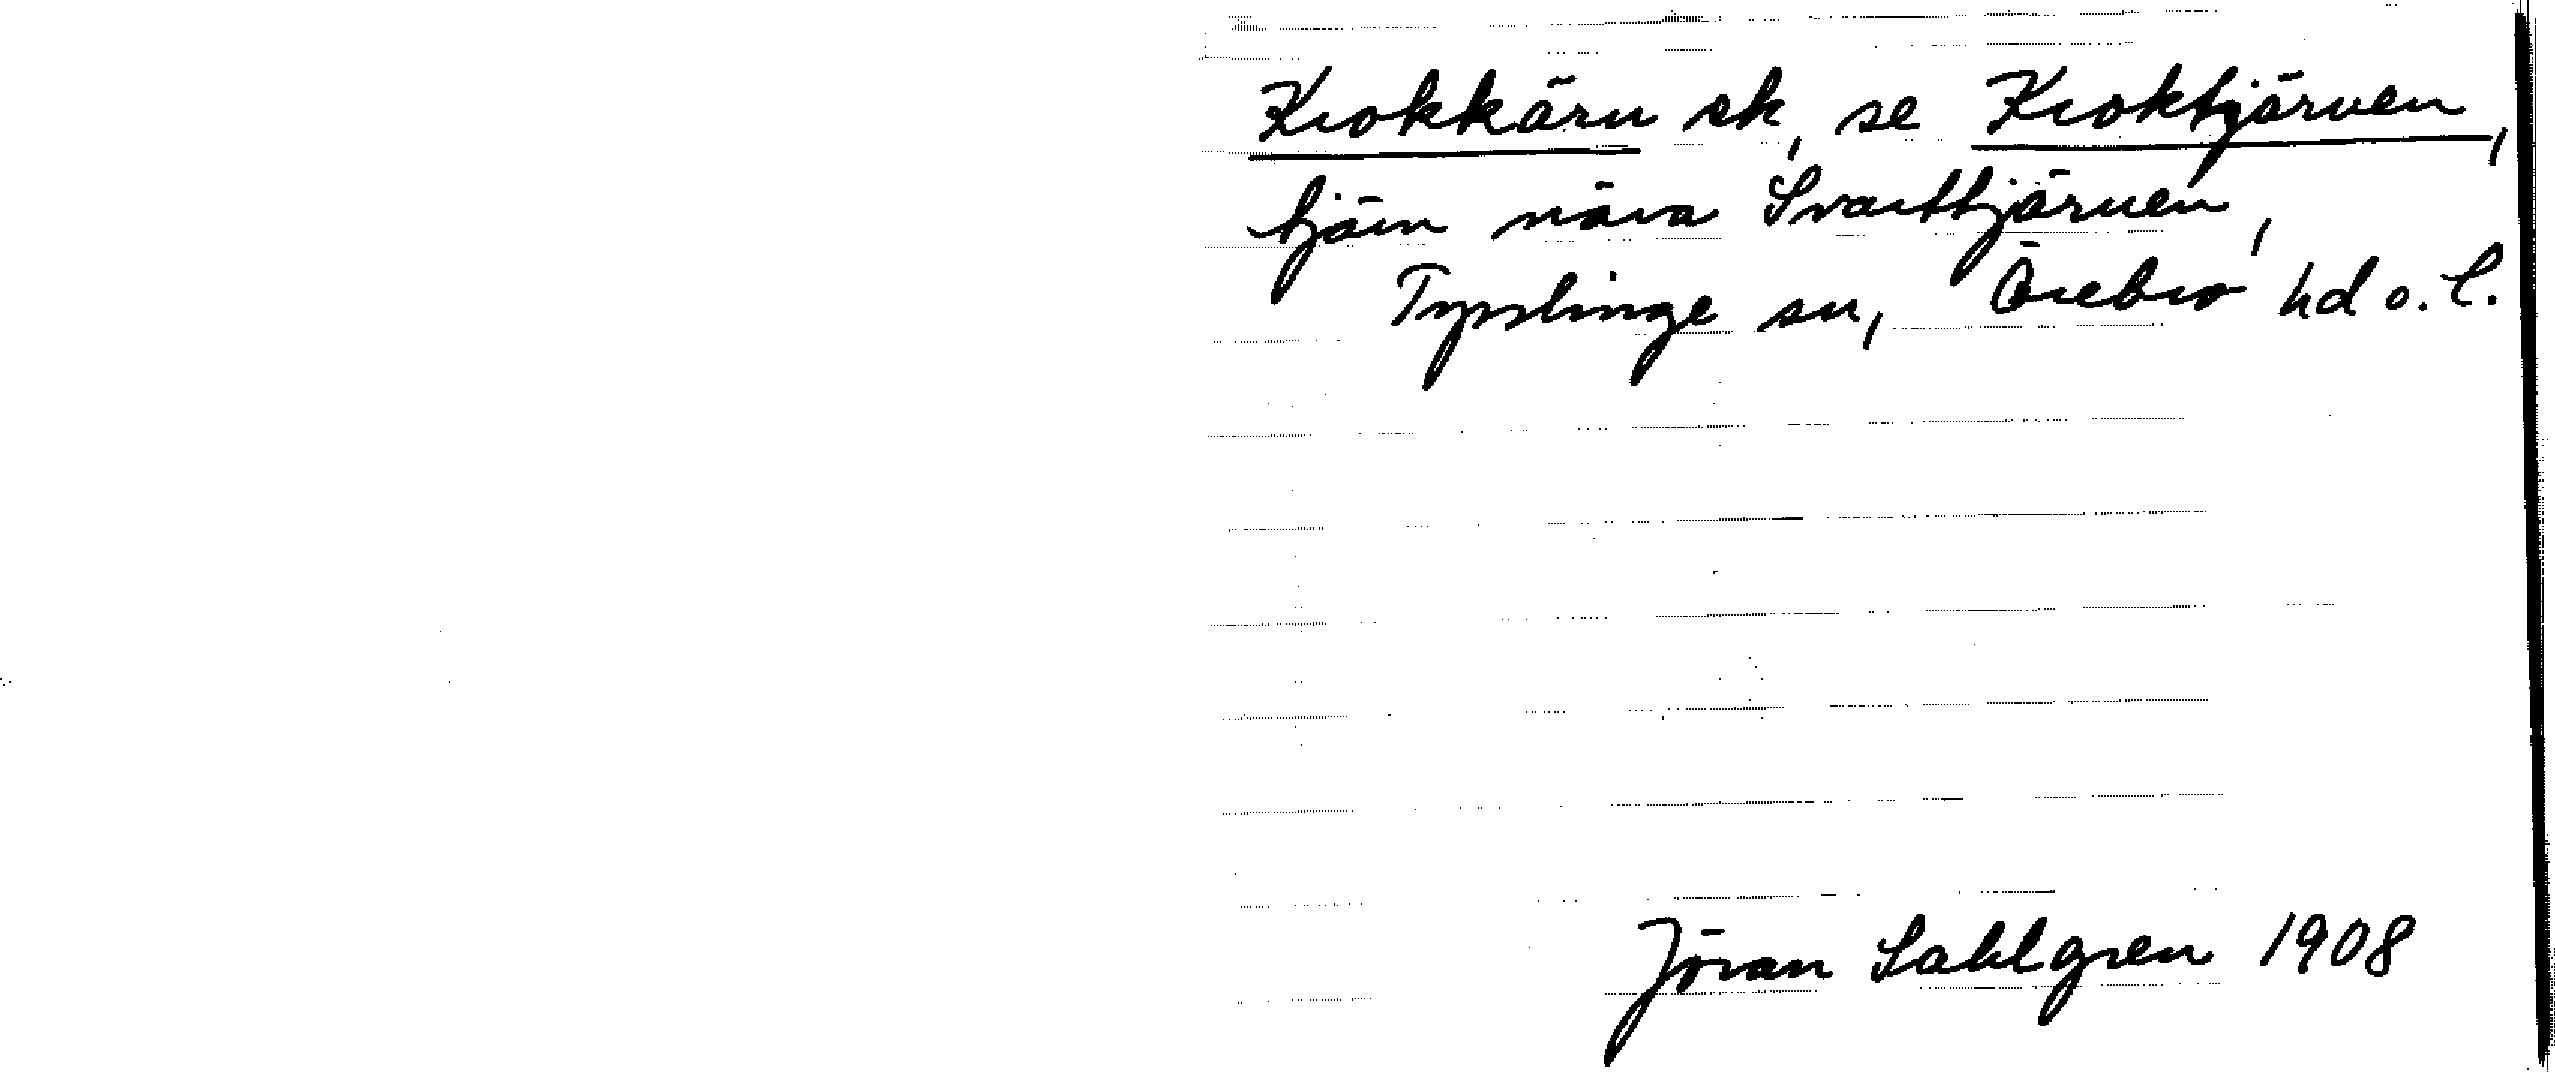 Krokkärn ek, se Kroktjärnen,
tjärn nära Svarttjärnen,
Tysslinge sn, Örebro hd o. l.
Jöran Sahlgren 1908